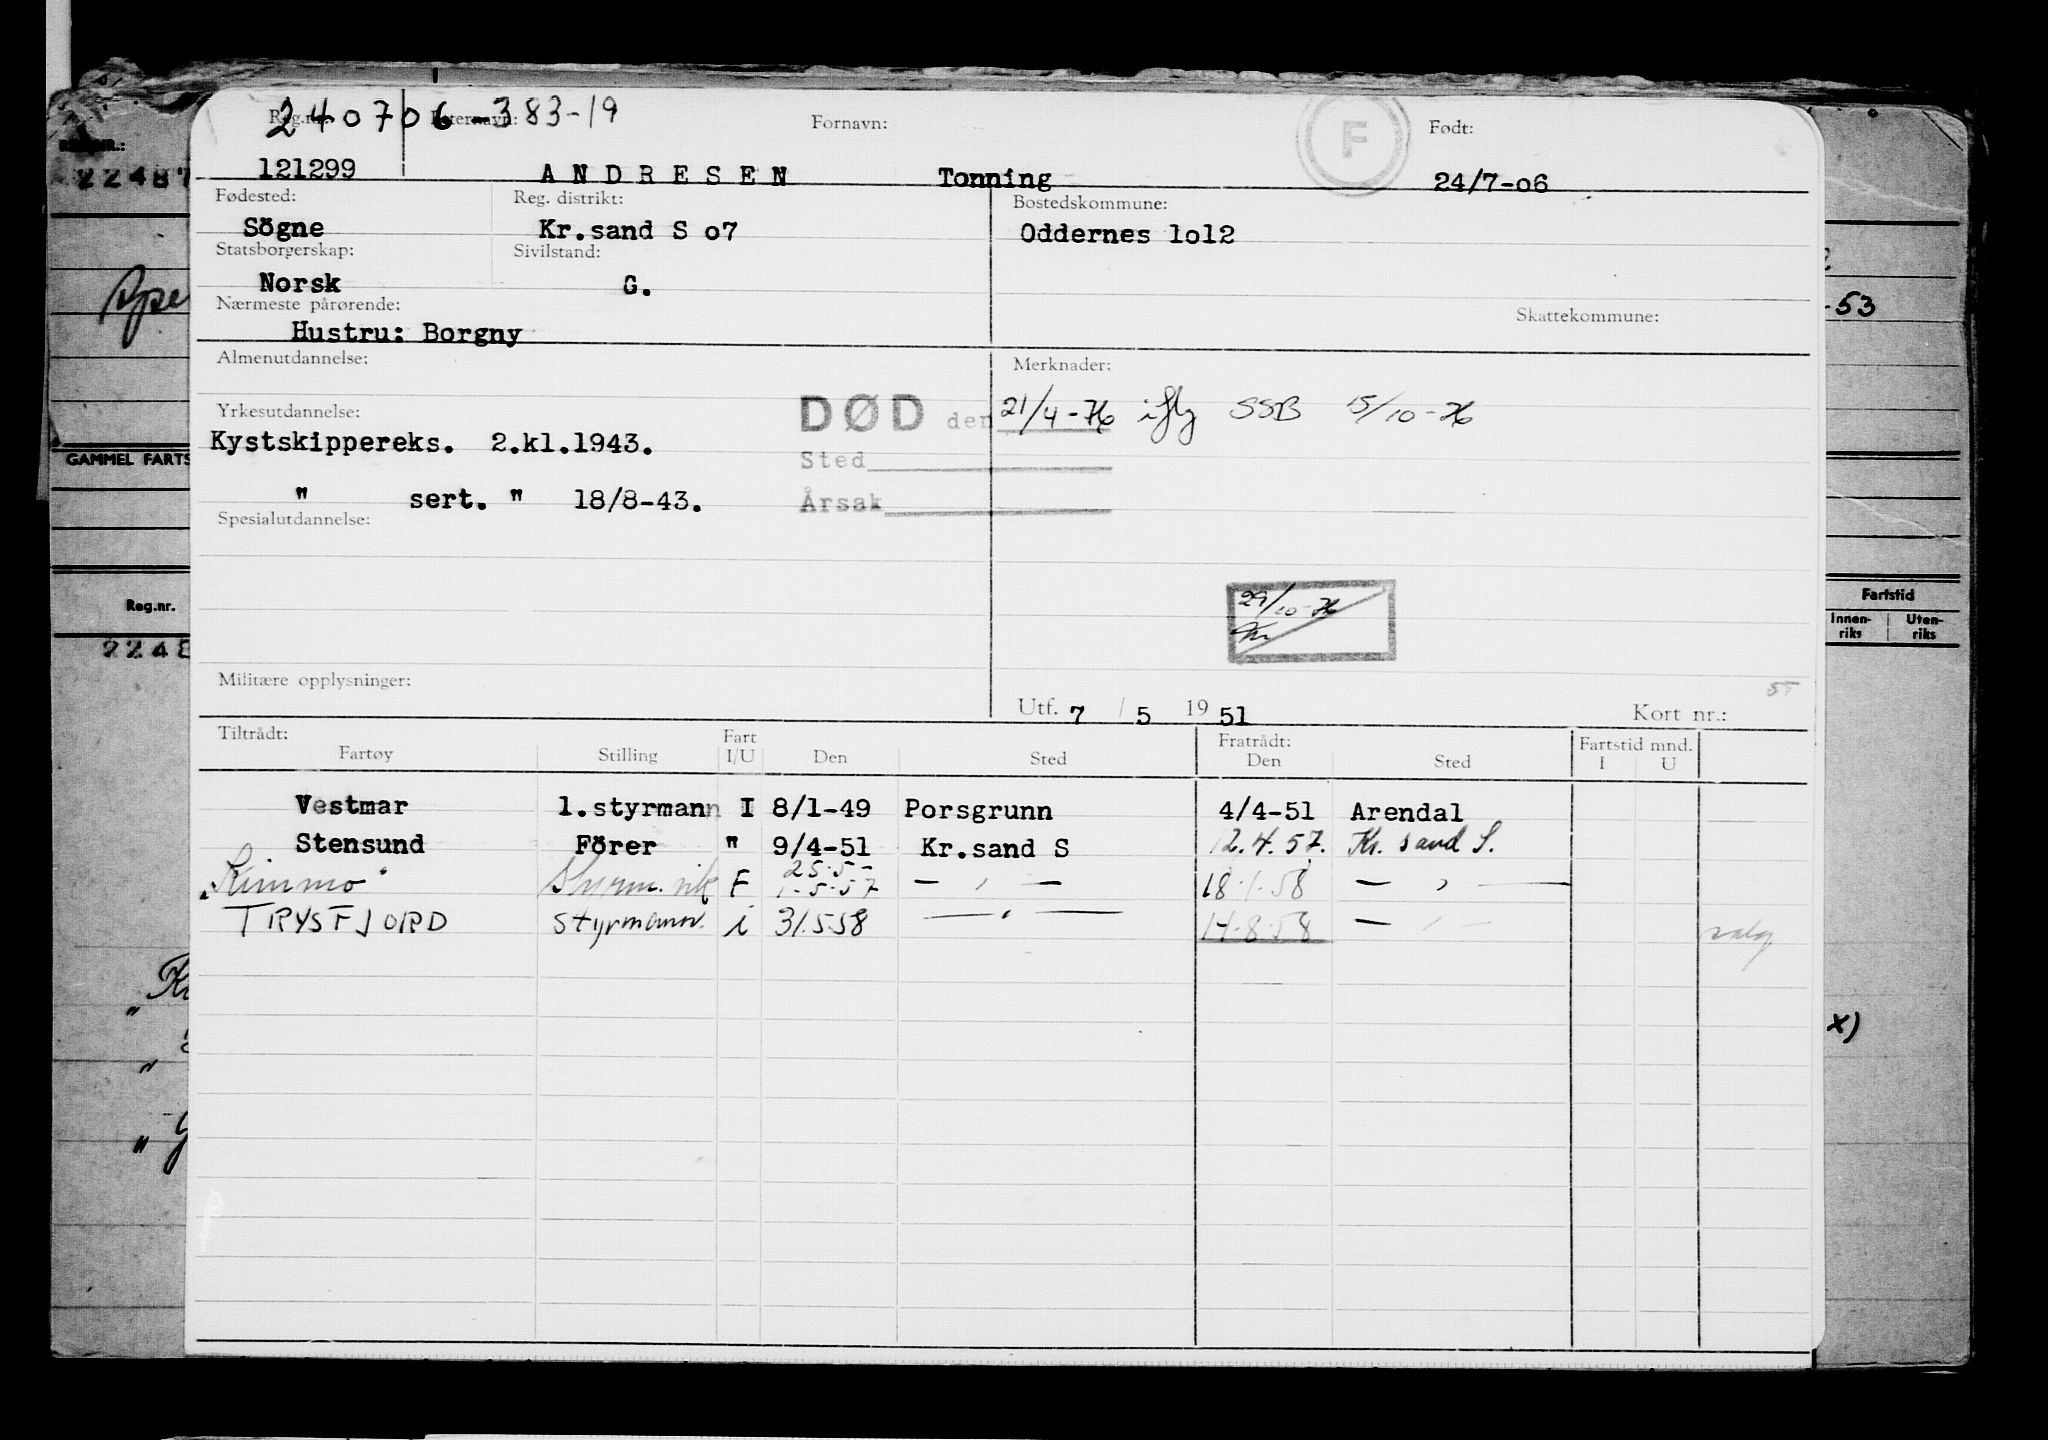 240706-383-19
Reg.nr. Etternavn: Fornavn: F Født:
121299 ANDRESEN Tonning 24/7-o6
Fødested: Reg. distrikt: Bostedskommune:
Sögne Kr.sand S o7 Oddernes lo12
Statsborgerskap: Sivilstand:
Norsk G.
Nærmeste pårørende: Skattekommune:
Hustru: Borgny
Almenutdannelse: Merknader:
Yrkesutdannelse: DØD den 21/4-76 iflg SSB 15/10-76
Kystskippereks. 2.kl.1943. Sted
" sert. " 18/8-43. Årsak
Spesialutdannelse:
29/10-76
Militære opplysninger:
Utf. 7 / 5 19 51 Kort nr.:
Tiltrådt: Fart Fratrådt: Fartstid mnd.
Fartøy Stilling I/U Den Sted Den Sted I U
Vestmar 1.styrmann I 8/1-49 Porsgrunn 4/4-51 Arendal
Stensund Förer " 9/4-51 Kr.sand S 12.4.57. Kr. sand S.
25.5-
"Kimmo" Styrm. vik F 1.5.57 — " — 18.1.58 — " —
TRYSFJORD styrmann. i 31.5.58 — " — 14.8.58 — " — salg
REG.NR.:
22487
GAMMEL FARTS
Reg.nr.
2248
-53
Fartstid
Innen-riks Uten-riks
x)